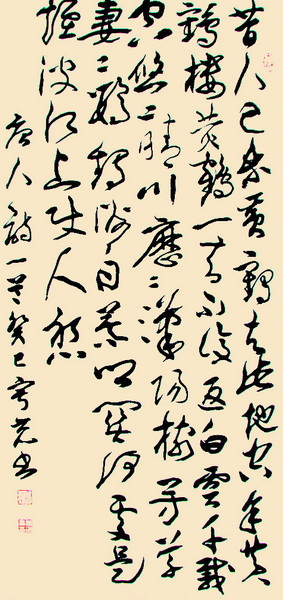 昔人已乘黄鶴去此地空余黄
鶴樓黄鶴一去不復返白雲千載
空悠々晴川歷々漢陽樹芳草
萋々鸚鵡洲日暮鄉關何處是
煙波江上使人愁
唐人詩一首癸巳书